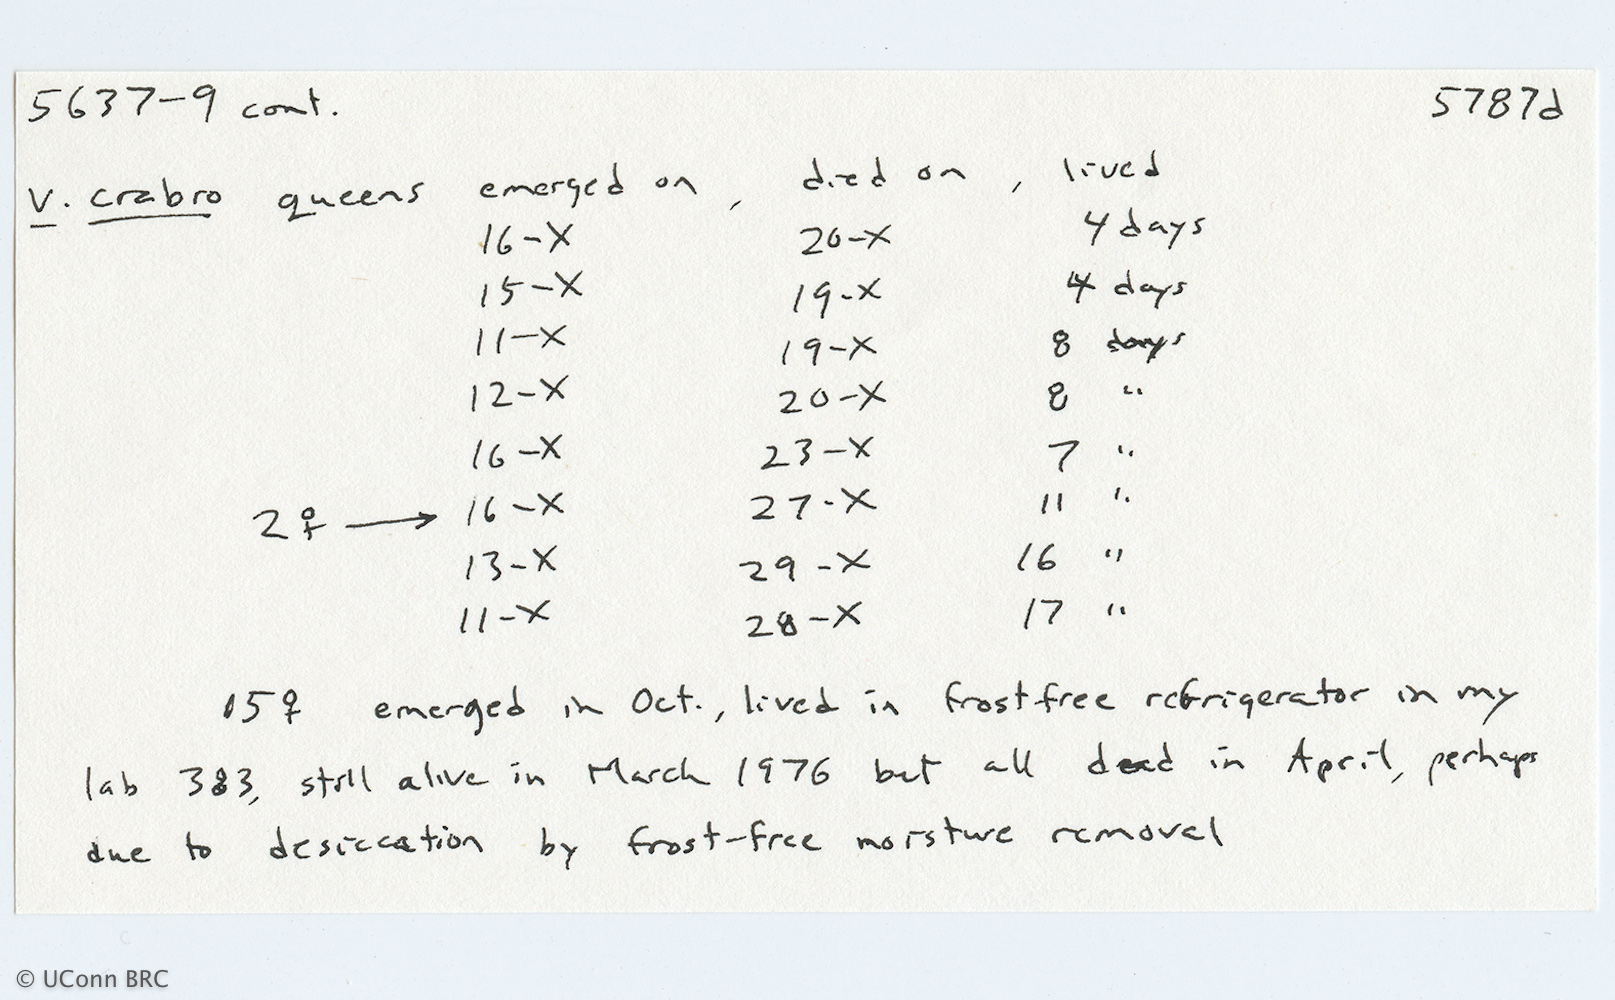 5637-9 cont. 5787d
V. crabro queens emerged on, died on, lived
16-X 20-X 4 days
15-X 19-X 4 days
11-X 19-X 8 days
12-X 20-X 8 "
16-X 23-X 7 "
2♀ → 16-X 27-X 11 "
13-X 29-X 16 "
11-X 28-X 17 "
15♀ emerged in Oct., lived in frostfree refrigerator in my
lab 383, still alive in March 1976 but all dead in April, perhaps
due to desiccation by frost-free moisture removal
© UConn BRC